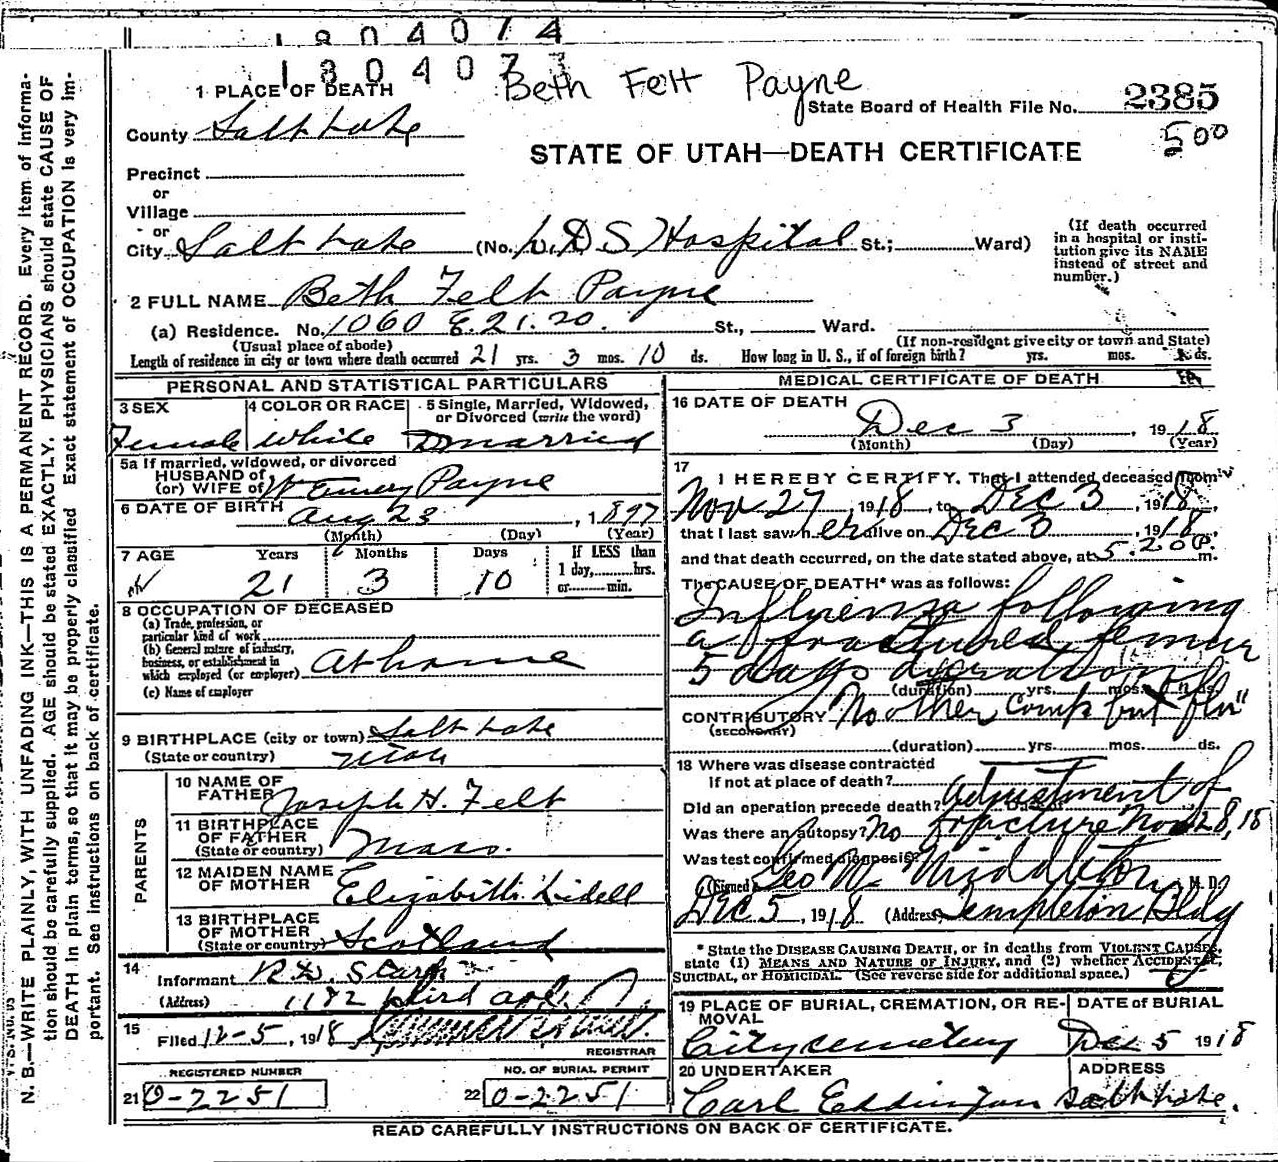 1804074
1804073
Beth Felt Payne
1 PLACE OF DEATH
State Board of Health File No. 2385
County Salt Lake
500
STATE OF UTAH—DEATH CERTIFICATE
Precinct
or
Village
or
City Salt Lake (No. L.D.S. Hospital St.; Ward)
(If death occurred in a hospital or insti-
tution give its NAME
instead of street and
number.)
2 FULL NAME Beth Felt Payne
(a) Residence. No. 1060 E. 21. So. St., Ward.
(Usual place of abode) (If non-resident give city or town and State)
Length of residence in city or town where death occurred 21 yrs. 3 mos. 10 ds. How long in U. S., if of foreign birth? yrs. mos. ds.
PERSONAL AND STATISTICAL PARTICULARS
3 SEX Female
4 COLOR OR RACE White
5 Single, Married, Widowed, or Divorced (write the word) married
5a If married, widowed, or divorced
HUSBAND of
(or) WIFE of Emery Payne
6 DATE OF BIRTH Aug 23, 1897
(Month) (Day) (Year)
7 AGE Years Months Days If LESS than
21 3 10 1 day, hrs.
or min.
8 OCCUPATION OF DECEASED
(a) Trade, profession, or
particular kind of work
(b) General nature of industry,
business, or establishment in
which employed (or employer) At home
(c) Name of employer
9 BIRTHPLACE (city or town) Salt Lake
(State or country) Utah
PARENTS
10 NAME OF
FATHER Joseph H. Felt
11 BIRTHPLACE
OF FATHER
(State or country) Mass.
12 MAIDEN NAME
OF MOTHER Elizabeth Lidell
13 BIRTHPLACE
OF MOTHER
(State or country) Scotland
14 Informant
(Address) 1182 third ave.
15 Filed 12-5, 1918
REGISTRAR
REGISTERED NUMBER
21 0-2251
NO. OF BURIAL PERMIT
22 0-2251
MEDICAL CERTIFICATE OF DEATH
16 DATE OF DEATH
Dec 3, 1918
(Month) (Day) (Year)
17 I HEREBY CERTIFY, That I attended deceased from
Nov 27, 1918, to Dec 3, 1918,
that I last saw her alive on Dec 3, 1918,
and that death occurred, on the date stated above, at 5.20 P. m.
The CAUSE OF DEATH* was as follows:
Influenza following
a fractured femur
5 days duration
(duration) yrs. mos. ds.
CONTRIBUTORY No other comp but "flu"
(SECONDARY)
(duration) yrs. mos. ds.
18 Where was disease contracted
if not at place of death?
Did an operation precede death? Adjustment of
Was there an autopsy? No fracture Nov 28, 18
Was test confirmed diagnosis?
(Signed) Geo W. Middleton, M. D.
Dec 5, 1918 (Address) Templeton Bldg
* State the DISEASE CAUSING DEATH, or in deaths from VIOLENT CAUSES,
state (1) MEANS AND NATURE OF INJURY, and (2) whether ACCIDENTAL,
SUICIDAL, or HOMICIDAL. (See reverse side for additional space.)
19 PLACE OF BURIAL, CREMATION, OR RE-
MOVAL
City cemetery
DATE of BURIAL
Dec 5 1918
20 UNDERTAKER
Carl Eddington
ADDRESS
Salt Lake.
READ CAREFULLY INSTRUCTIONS ON BACK OF CERTIFICATE.
N. B.—WRITE PLAINLY, WITH UNFADING INK—THIS IS A PERMANENT RECORD. Every item of informa-
tion should be carefully supplied. AGE should be stated EXACTLY. PHYSICIANS should state CAUSE OF
DEATH in plain terms, so that it may be properly classified. Exact statement of OCCUPATION is very im-
portant. See instructions on back of certificate.